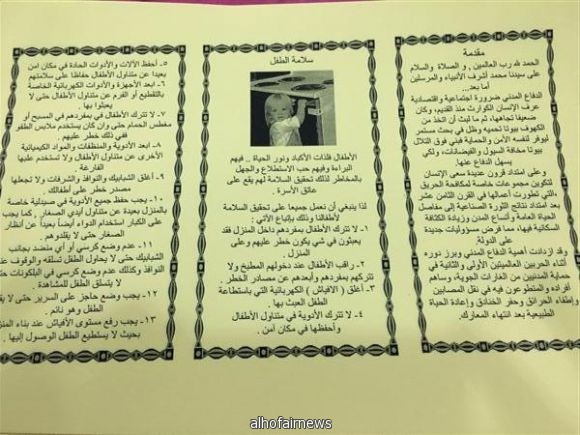 مقدمة
الحمد لله رب العالمين , و الصلاة والسلام
على سيدنا محمد أشرف الأنبياء والمرسلين
أما بعد...
الدفاع المدني ضرورة اجتماعية واقتصادية
عرف الإنسان الكوارث منذ القديم، وكان
ضعيفا تجاهها، ثم ما لبث أن اتخذ من
الكهوف بيوتا تحميه وظل في بحث مستمر
ليوفر لنفسه الأمن والحماية فبنى فوق التلال
بيوتا مخافة السيول والفيضانات، ولكي
يسهل الدفاع عنها.
وعلى امتداد قرون عديدة سعى الإنسان
لتكوين مجموعات خاصة لمكافحة الحريق
،التي تطورت أعمالها في القرن الثامن عشر
بعد امتداد نتائج الثورة الصناعية إلى مفاصل
الحياة العامة وأتساع المدن وزيادة الكثافة
السكانية فيها، مما فرض مسؤوليات جديدة
على الدولة.
وقد ازدادت أهمية الدفاع المدني وبرز دوره
أثناء الحربين العالميتين الأولى والثانية في
حماية المدنيين من الغارات الجوية، وساهم
أفراده والمتطوعون فيه في نقل المصابين
وإطفاء الحرائق وحفر الخنادق وإعادة الحياة
الطبيعية بعد انتهاء المعارك.
سلامة الطفل
الأطفال فلذات الأكباد ونور الحياة .. فيهم
البراءة وفيهم حب الاستطلاع والجهل
بالمخاطر لذلك تحقيق السلامة لهم يقع على
عاتق الأسرة .
لذا ينبغي أن نعمل جميعا على تحقيق السلامة
لأطفالنا وذلك بإتباع الأتي :
١- لا تترك الأطفال بمفردهم داخل المنزل فقد
يعبثون في شي يكون خطر عليهم وعلى
المنزل .
٢- راقب الأطفال عند دخولهم المطبخ ولا
تتركهم بمفردهم وأبعدهم عن مصادر الخطر .
٣- أغلق ( الافياش ) الكهربائية التي باستطاعة
الطفل العبث بها .
٤- لا تترك الأدوية في متناول الأطفال
وأحفظها في مكان أمن .
٥- أحفظ الآلات والأدوات الحادة في مكان امن
بعيدا عن متناول الأطفال حفاظا على سلامتهم
٦- ابعد الأجهزة والأدوات الكهربائية الخاصة
بالتقطيع أو الفرم عن متناول الأطفال حتى لا
يعبثوا بها .
٧- لا تترك الأطفال في بمفردهم في المسبح أو
مغطس الحمام حتى وان كان يستخدم ملابس الطفو
ففي ذلك خطر عليهم .
٨- ابعد الأدوية والمنظفات والمواد الكيميائية
الأخرى عن متناول الأطفال ولا تستخدم عليها
الفارغة .
٩- أغلق الشبابيك والنوافذ والشرفات ولا تجعلها
مصدر خطر على أطفالك .
١٠- يجب حفظ جميع الأدوية في صيدلية خاصة
بالمنزل بعيدة عن متناول أيدي الصغار , كما يجب
على الكبار استخدام الدواء أيضاً بعيداً عن أنظار
الصغار حتى لا يقلدوهم .
١١- عدم وضع كرسي أو أي منضد بجانب
الشبابيك حتى لا يحاول الطفل تسلقه والوقوف عند
النوافذ وكذلك عدم وضع كرسي في البلكونات حتى
لا يتسلق الطفل للمشاهدة .
١٢- يجب وضع حاجز على السرير حتى لا يقع
الطفل وهو نائم .
١٣- يجب رفع مستوى الأفياش عند بناء المنزل
بحيث لا يستطيع الطفل الوصول إليها .
alhofairnews